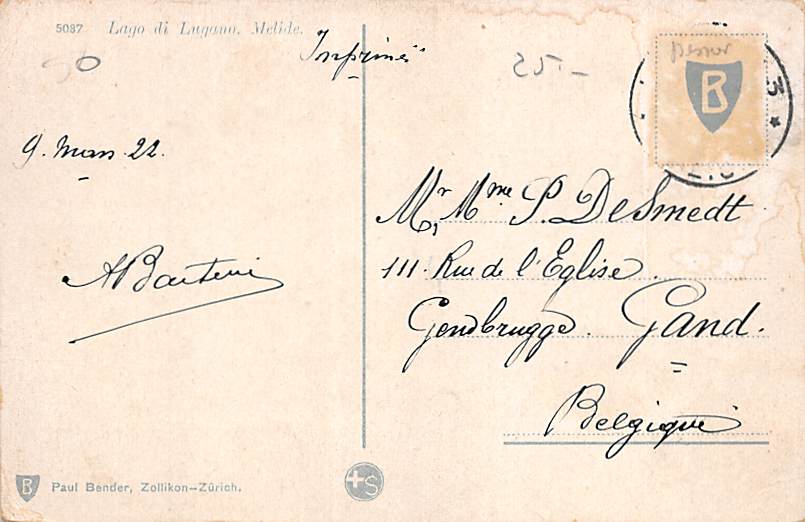 5087 Lago di Lugano. Melide.
Imprimés
525 -
B
3
9. Mars 22.
Mr, Mme P. DeSmedt
111. Rue de l'Eglise.
Gendbrugge. Gand.
Belgique
B Paul Bender, Zollikon-Zürich.
+S